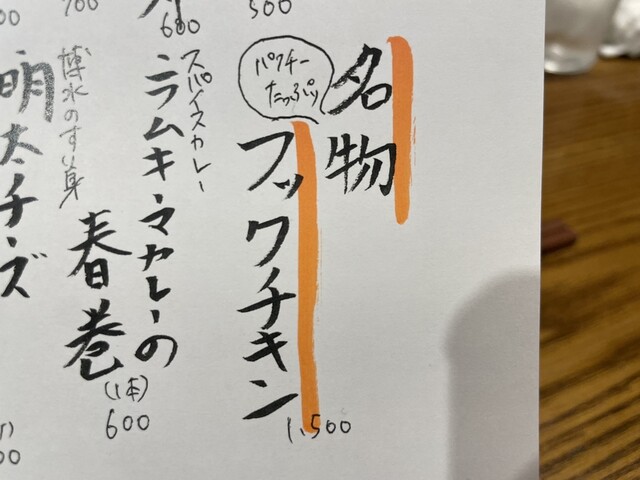 名物
パクチー
たっぷり
フックノチキン
1,500
スパイスカレー
ラムキーマカレーの
春巻
(1本)
600
博水のすり身
明太チーズ
600
500
700